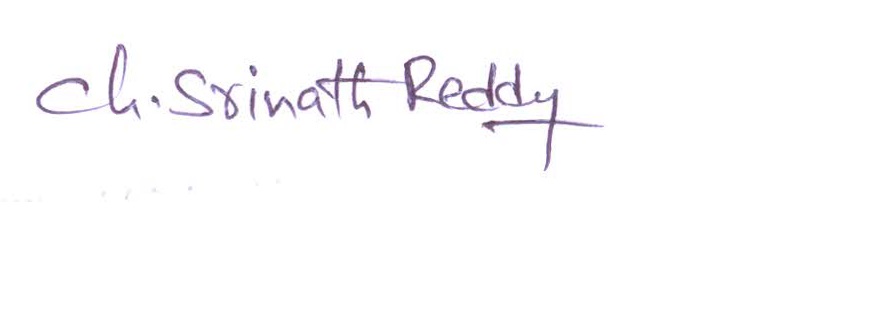 Ch. Srinath Reddy